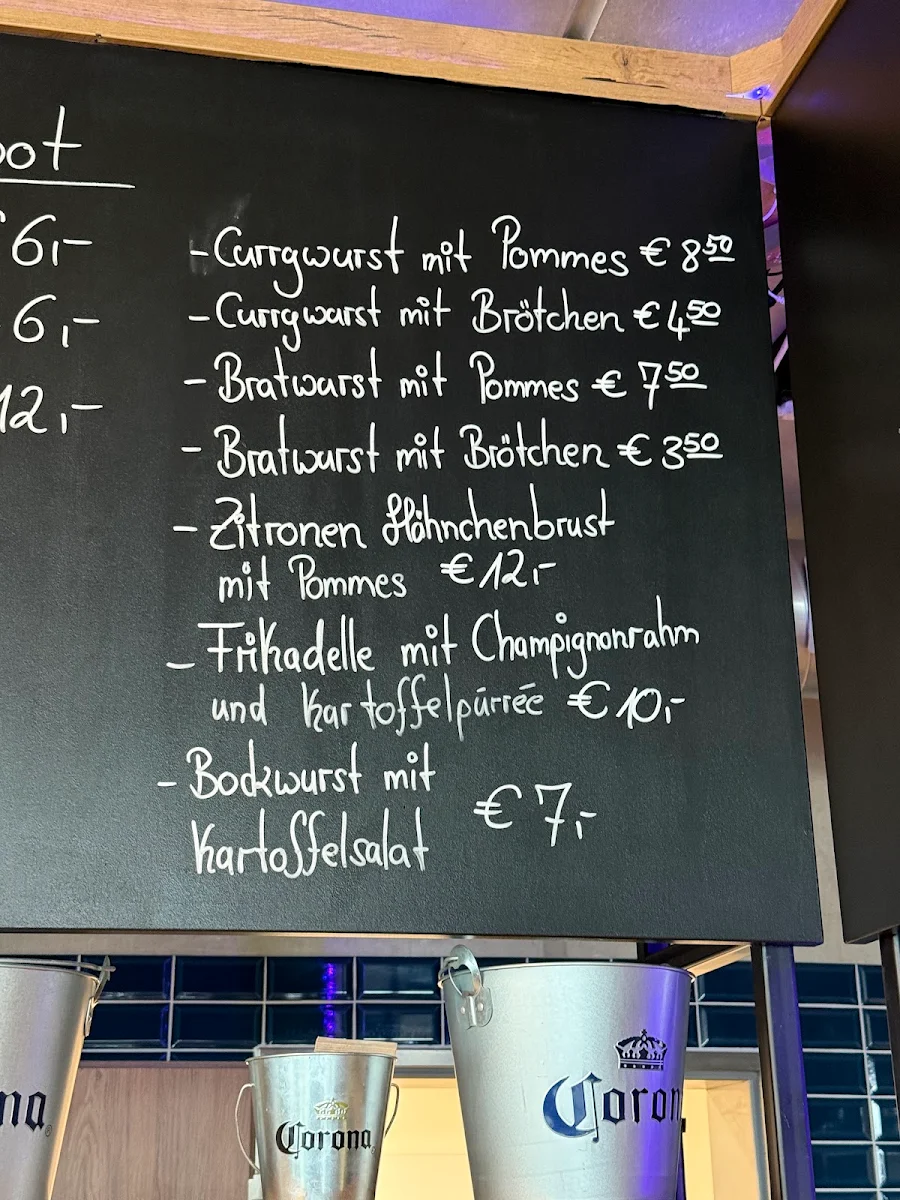 6,-
6,-
12,-
- Currywurst mit Pommes € 8⁵⁰
- Currywurst mit Brötchen € 4⁵⁰
- Bratwurst mit Pommes € 7⁵⁰
- Bratwurst mit Brötchen € 3⁵⁰
- Zitronen Hähnchenbrust
mit Pommes € 12,-
- Frikadelle mit Champignonrahm
und Kartoffelpürrée € 10,-
- Bockwurst mit
Kartoffelsalat € 7,-
Corona
Corona